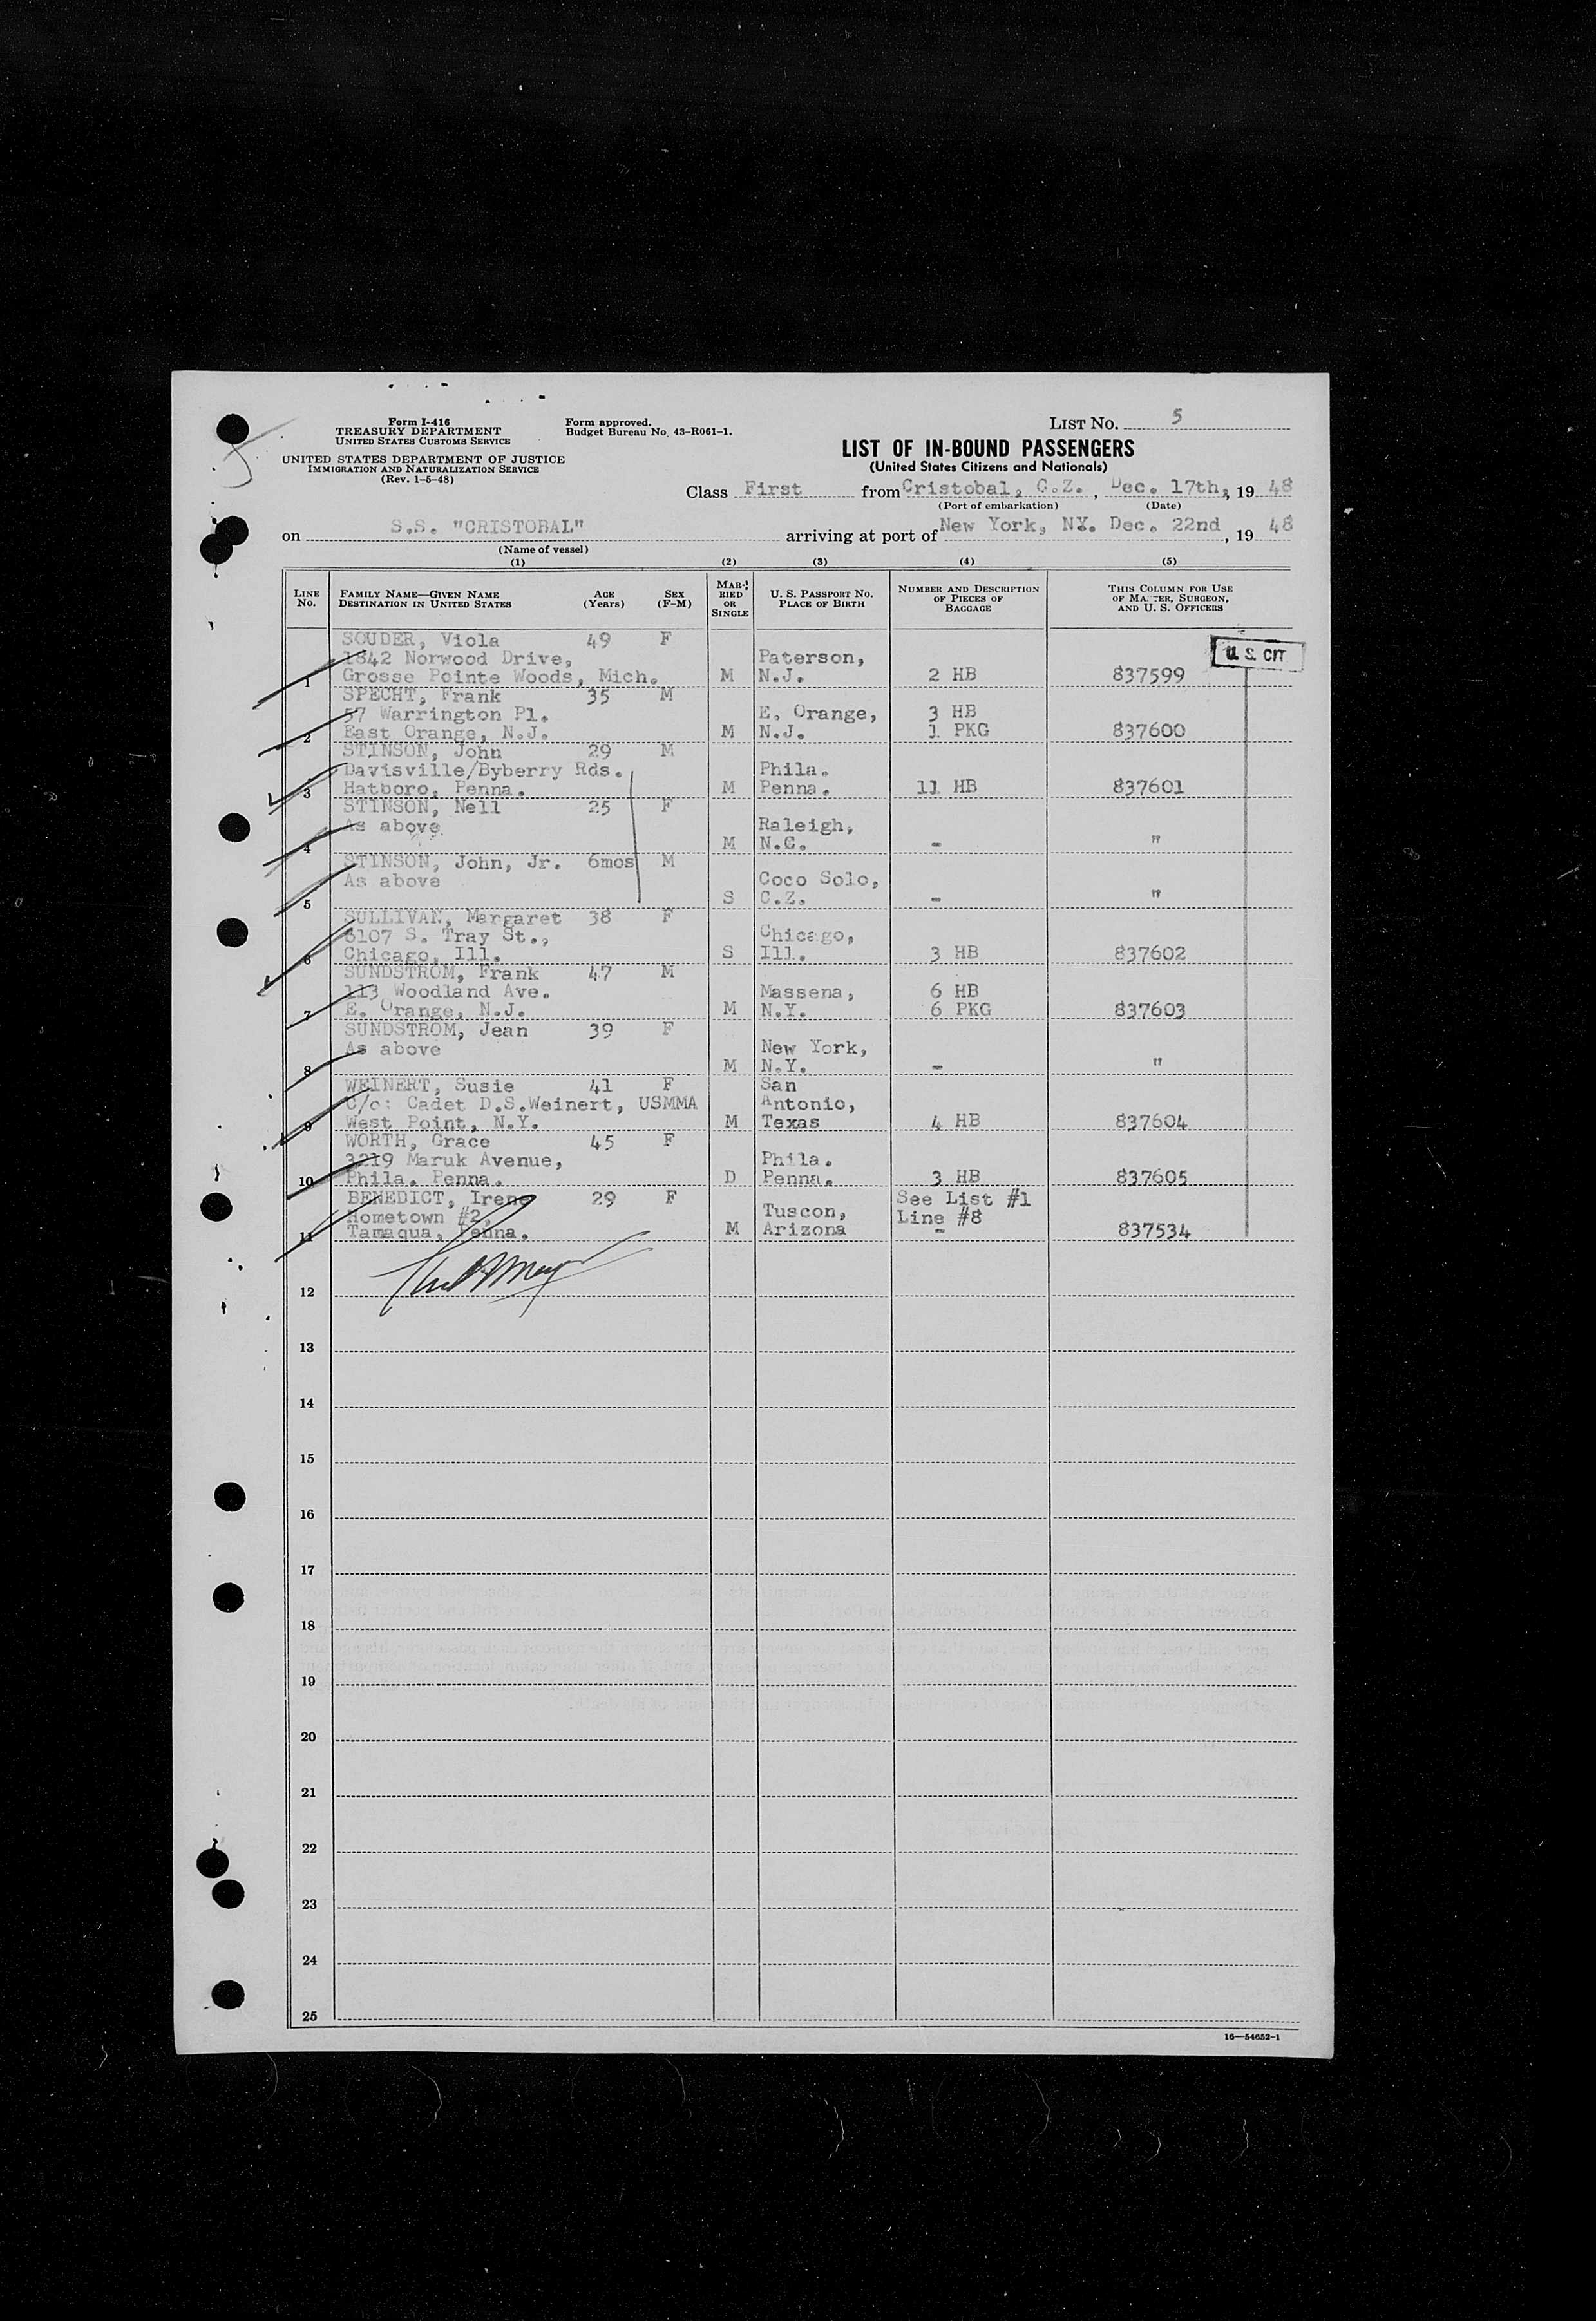 LIST NO. 5
Form I-416
TREASURY DEPARTMENT
UNITED STATES CUSTOMS SERVICE
Form approved.
Budget Bureau No. 43-R061-1.
UNITED STATES DEPARTMENT OF JUSTICE
IMMIGRATION AND NATURALIZATION SERVICE
(Rev. 1-5-48)
LIST OF IN-BOUND PASSENGERS
(United States Citizens and Nationals)
Class First from Cristobal, C.Z., Dec. 17th, 19 48
(Port of embarkation) (Date)
on S.S. "CRISTOBAL" arriving at port of New York, NY. Dec. 22nd, 19 48
(Name of vessel)
(1) (2) (3) (4) (5)
LINE No. FAMILY NAME—GIVEN NAME DESTINATION IN UNITED STATES AGE (Years) SEX (F-M) MARRIED OR SINGLE U. S. PASSPORT NO. PLACE OF BIRTH NUMBER AND DESCRIPTION OF PIECES OF BAGGAGE THIS COLUMN FOR USE OF MASTER, SURGEON, AND U. S. OFFICERS
U. S. CIT
SOUDER, Viola 49 F
1842 Norwood Drive, Paterson,
1 Grosse Pointe Woods, Mich. M N.J. 2 HB 837599
SPECHT, Frank 35 M
57 Warrington Pl. E. Orange, 3 HB
2 East Orange, N.J. M N.J. 1 PKG 837600
STINSON, John 29 M
Davisville/Byberry Rds. Phila.
3 Hatboro, Penna. M Penna. 11 HB 837601
STINSON, Nell 25 F
As above Raleigh,
4 M N.C. - "
STINSON, John, Jr. 6mos M
As above Coco Solo,
5 S C.Z. - "
SULLIVAN, Margaret 38 F
6107 S. Tray St., Chicago,
6 Chicago, Ill. S Ill. 3 HB 837602
SUNDSTROM, Frank 47 M
113 Woodland Ave. Massena, 6 HB
7 E. Orange, N.J. M N.Y. 6 PKG 837603
SUNDSTROM, Jean 39 F
As above New York,
8 M N.Y. - "
WEINERT, Susie 41 F San
C/o: Cadet D.S.Weinert, USMMA Antonio,
9 West Point, N.Y. M Texas 4 HB 837604
WORTH, Grace 45 F
3219 Maruk Avenue, Phila.
10 Phila. Penna. D Penna. 3 HB 837605
BENEDICT, Irene 29 F See List #1
Hometown #2, Tuscon, Line #8
11 Tamaqua, Penna. M Arizona - 837534
12
13
14
15
16
17
18
19
20
21
22
23
24
25
16—54652-1